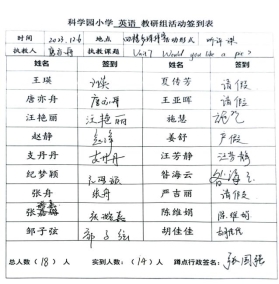 科学园小学 英语 教研组活动签到表
时间 2023.12.6 地点 活动形式 听评课
执教人 唐亦丹 执教课题 Unit7 Would you like a pie?
姓名 签到 姓名 签到
王瑛 王瑛 夏传芳 请假
唐亦丹 唐亦丹 王亚晖 请假
汪艳丽 汪艳丽 施慧 施慧
赵静 赵静 姜舒 产假
支丹丹 支丹丹 汪芳静 汪芳静
纪梦颖 纪梦颖 昝海云 昝海云
张舟 张舟 严吉丽 请假
张 陈维娟 陈维娟
邹子弦 邹子弦 胡佳佳 胡佳佳
总人数(18)人 实到人数(14)人 蹲点行政签名: 张国强